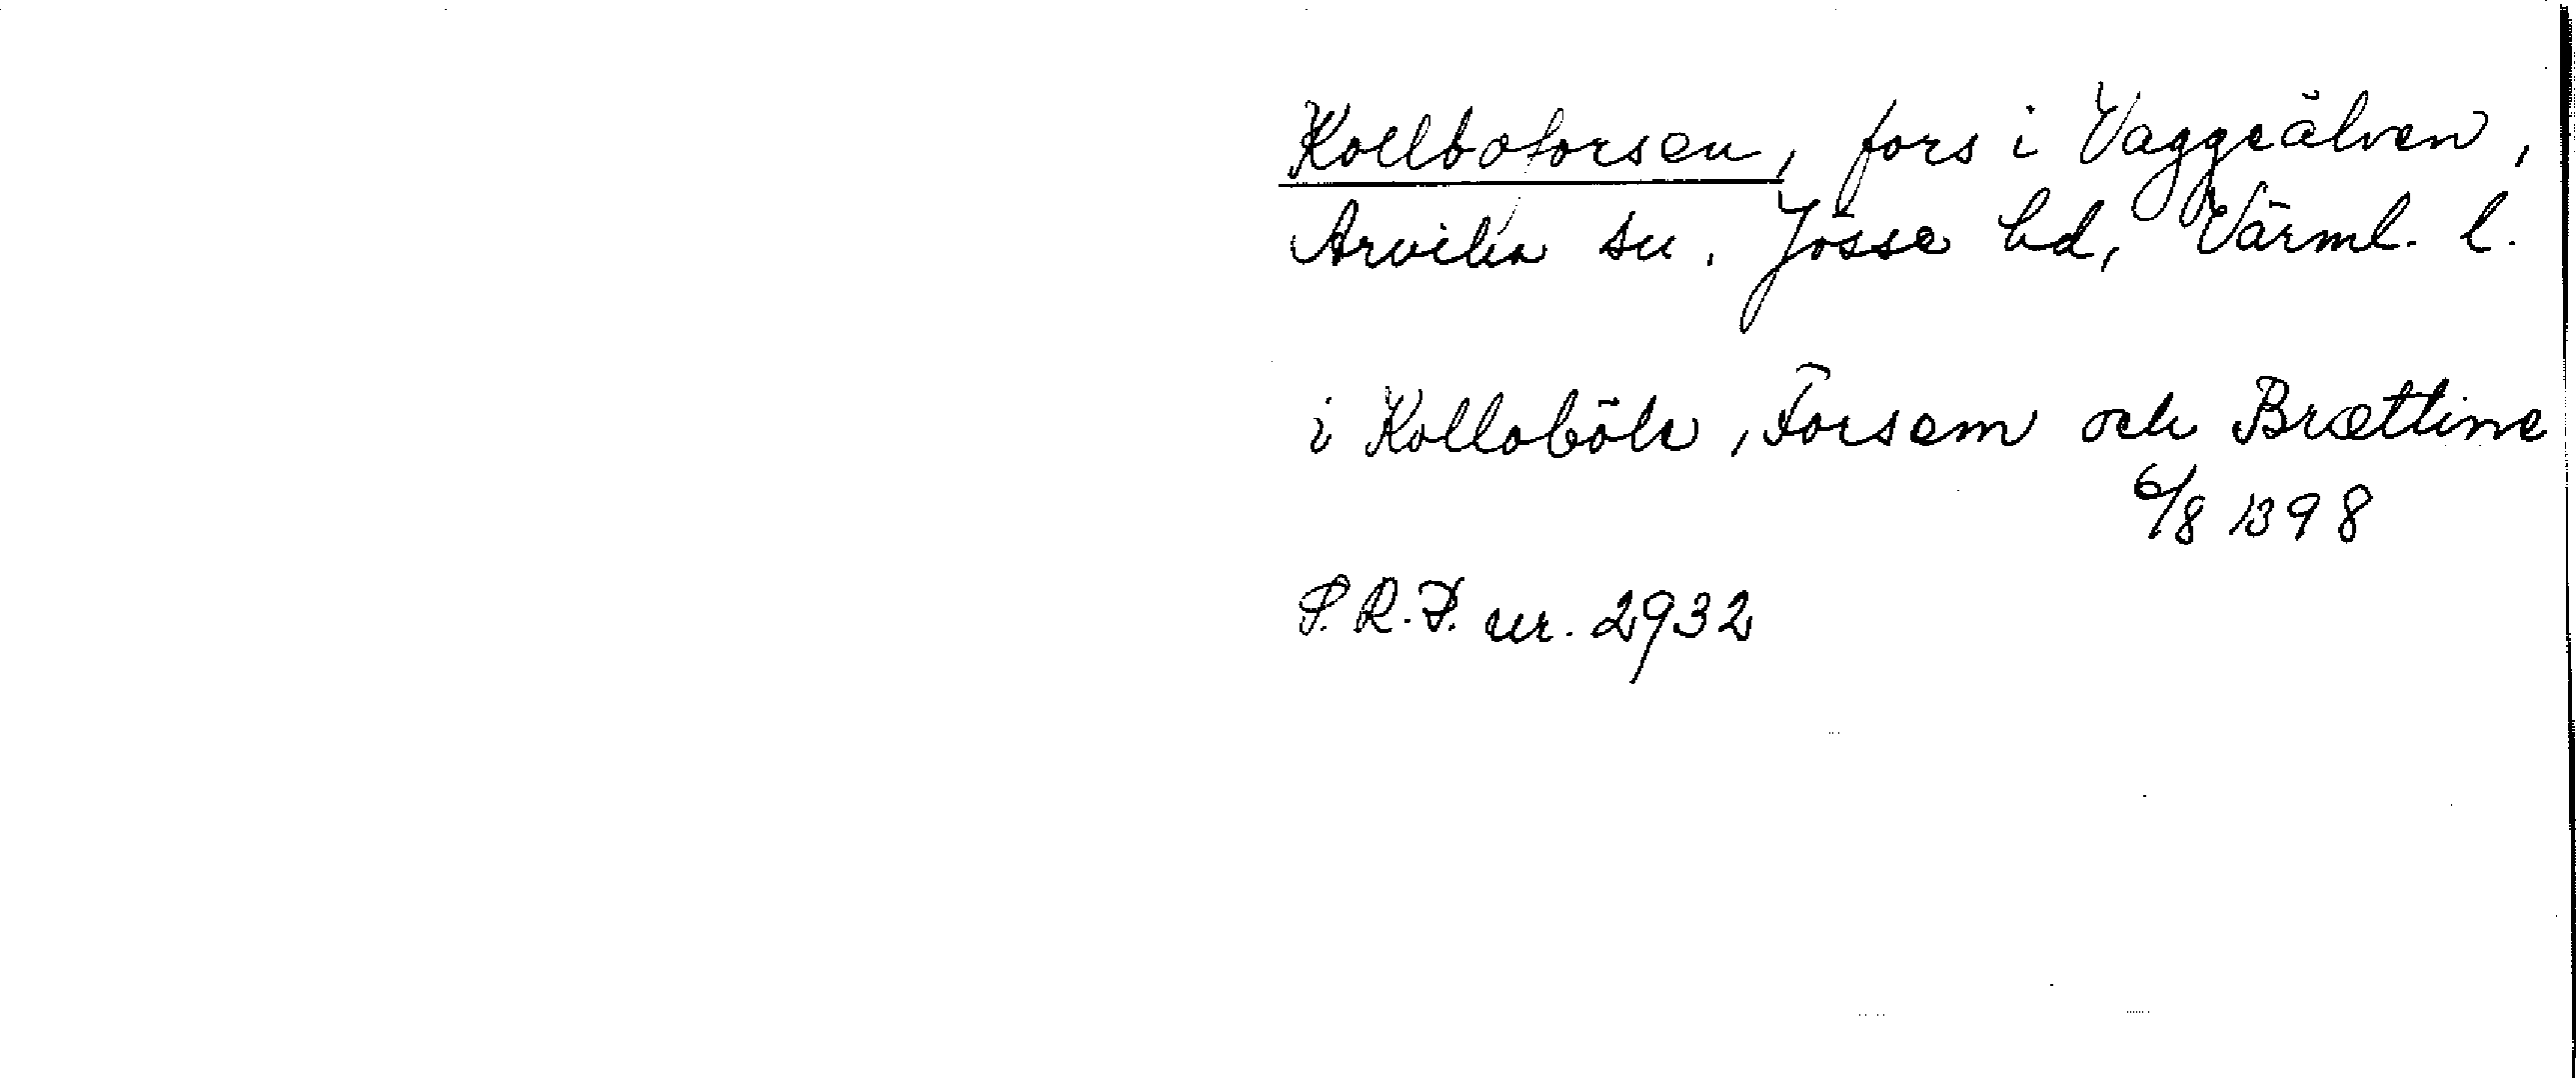 Kollboforsen, fors i Vaggeälven,
Arvika sn. Jösse hd, Värml. l.
i Kollobölr, Forsem och Brættine
6/8 1398
S.R.P. nr. 2932